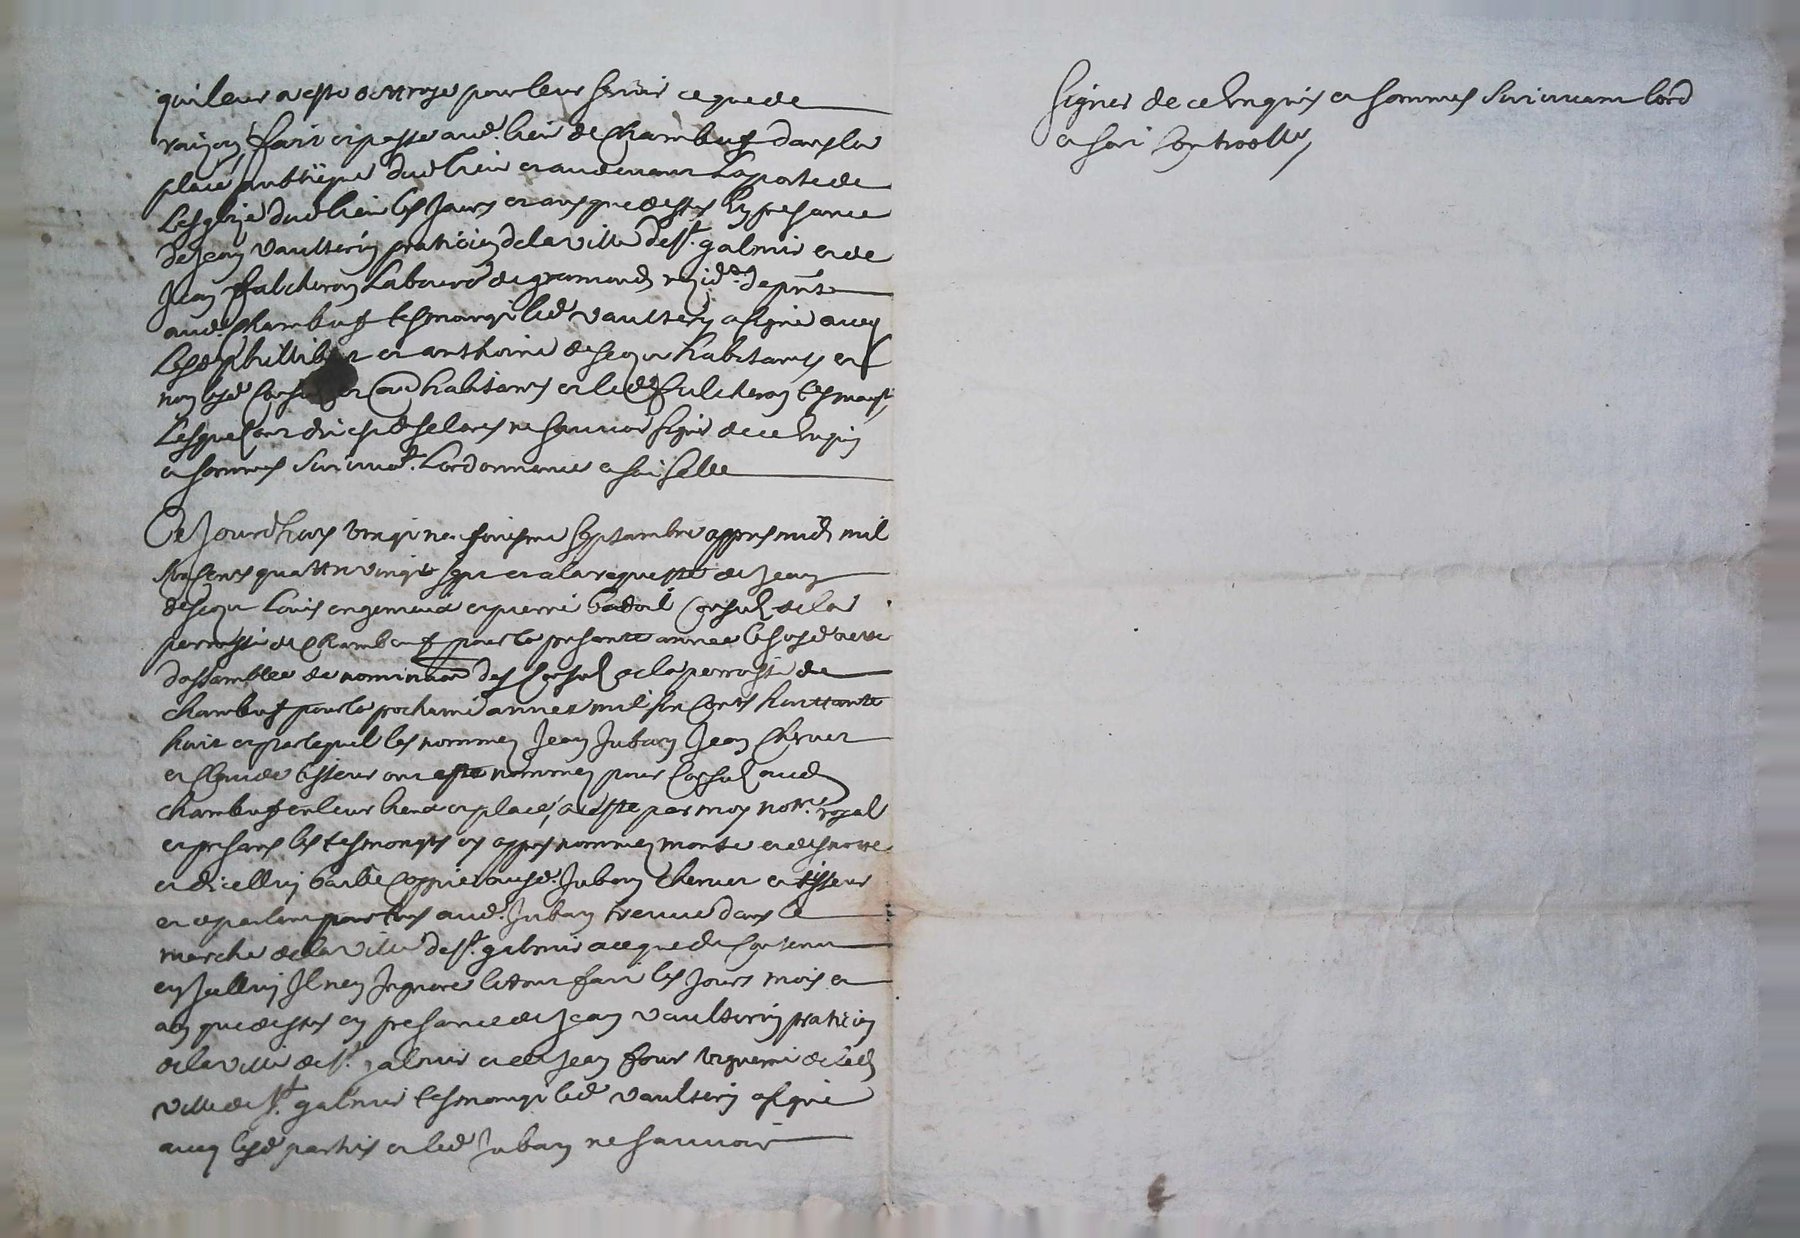 quil leur a esté octtroyé pour leur servir ce que de
raizon, fait et passé aud. lieu de Chambeuf dans la
place publique dud lieu et audevant la porte de
lesglize dud lieu les jours et an que dessus en presance
de Jean Vaulterin praticien de la ville de St. galmier et de
Jean falcheron laboureur de gramond rezid. de pnt
aud. Chambeuf tesmoingt led Vaulterin a signé avecq
lesd phillib et anthoine habitants et
non lesd et habitants et led falcheron tesmoingt
lesquels ont dit et desclarés ne sauvoir signé de ce enquis
et sommés suivant lordonnance et soit sellé
Ce jourdhuy vingt neufiesme septambre appres midy mil
six cents quattre vingt sept et a la requeste de Jean
Louis et pierre consulz de la
perroisse de Chambeuf pour la presante année le susd acte
dassamblée de nomination des consulz de la perroisse de
Chambeuf pour la prochaine année mil six cents huittante
huit et par lequel les nommez Jean Juban Jean Chervet
et Claude tisseur ont esté nommez pour consulz aud
Chambeuf en leur lieu et place, a esté par moy notre. royal
et presans les tesmoingts cy appres nommez monstré
et dicelluy baillé coppie ausd. Juban Chervet et tisseur
et ce parlant pour tous aud. Juban treuvé dans le
marché de la ville de St. galmier a ce que du contenu
en jcelluy Il nen Ingnore le tout fait les jours mois et
an que dessus en presance de Jean Vaulterin praticien
de la ville de St. galmier et de Jean four vigneron de lad
ville de St. galmier tesmoingt led Vaulterin a signé
avecq lesd partis et led Juban ne sauvoir
signer de ce enquis et sommés suivant lord
et soit controollé